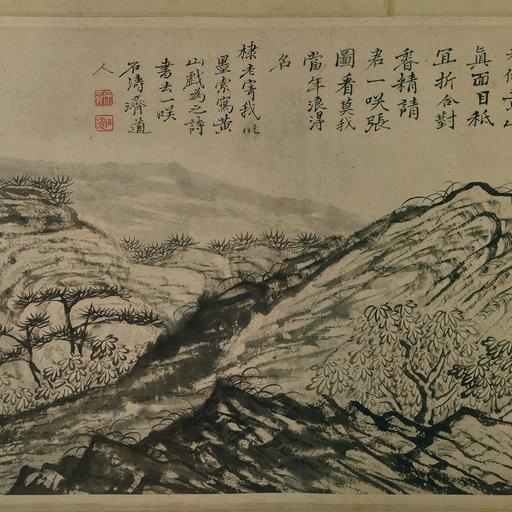 眞面目秪
宜折合對
香精請
君一咲張
圖看莫我
當年浪得
名
棣老寄我以
墨索寫黄
山戯為之詩
書去一咲
石濤濟道
人